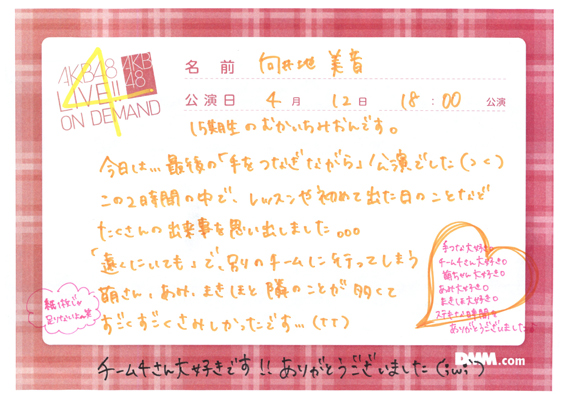 AKB48
LIVE!!
ON DEMAND
AKB
48
4
名前 向井地 美音
公演日 4月 12日 18:00 公演
15期生のむかいちみおんです。
今日は…最後の「手をつなぎながら」公演でした(><)
この2時間の中で、レッスンや初めて出た日のことなど
たくさんの出来事を思い出しました。。。
「遠くにいても」で、別のチームに行ってしまう
萌さん、あめ、まきほと隣のことが多くて
すごくすごくさみしかったです…(TT)
足りないよ
手つな大好き♡
チーム4さん大好き♡
萌ちゃん大好き♡
あめ大好き♡
まきほ大好き♡
ステキな時間を
ありがとうございました
チーム4さん大好きです!!ありがとうございました(;w;)
DMM.com